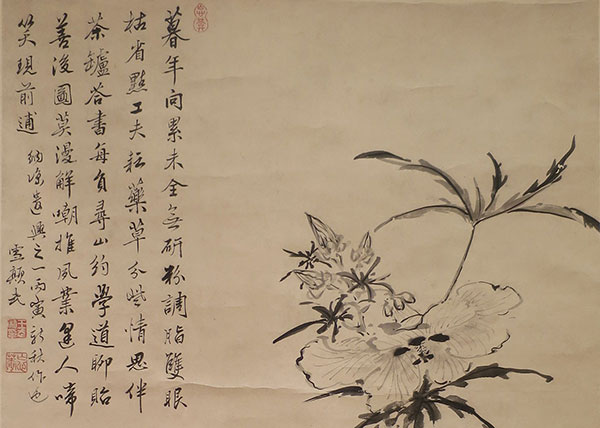 暮年向累未全無研粉調脂雙眼
枯省點工夫耘藥草分些情思伴
茶鑪荅書每負尋山約學道聊貽
善後圖莫漫解嘲推風業逢人啼
笑現前逋
納涼遣興之一丙寅新秋作也